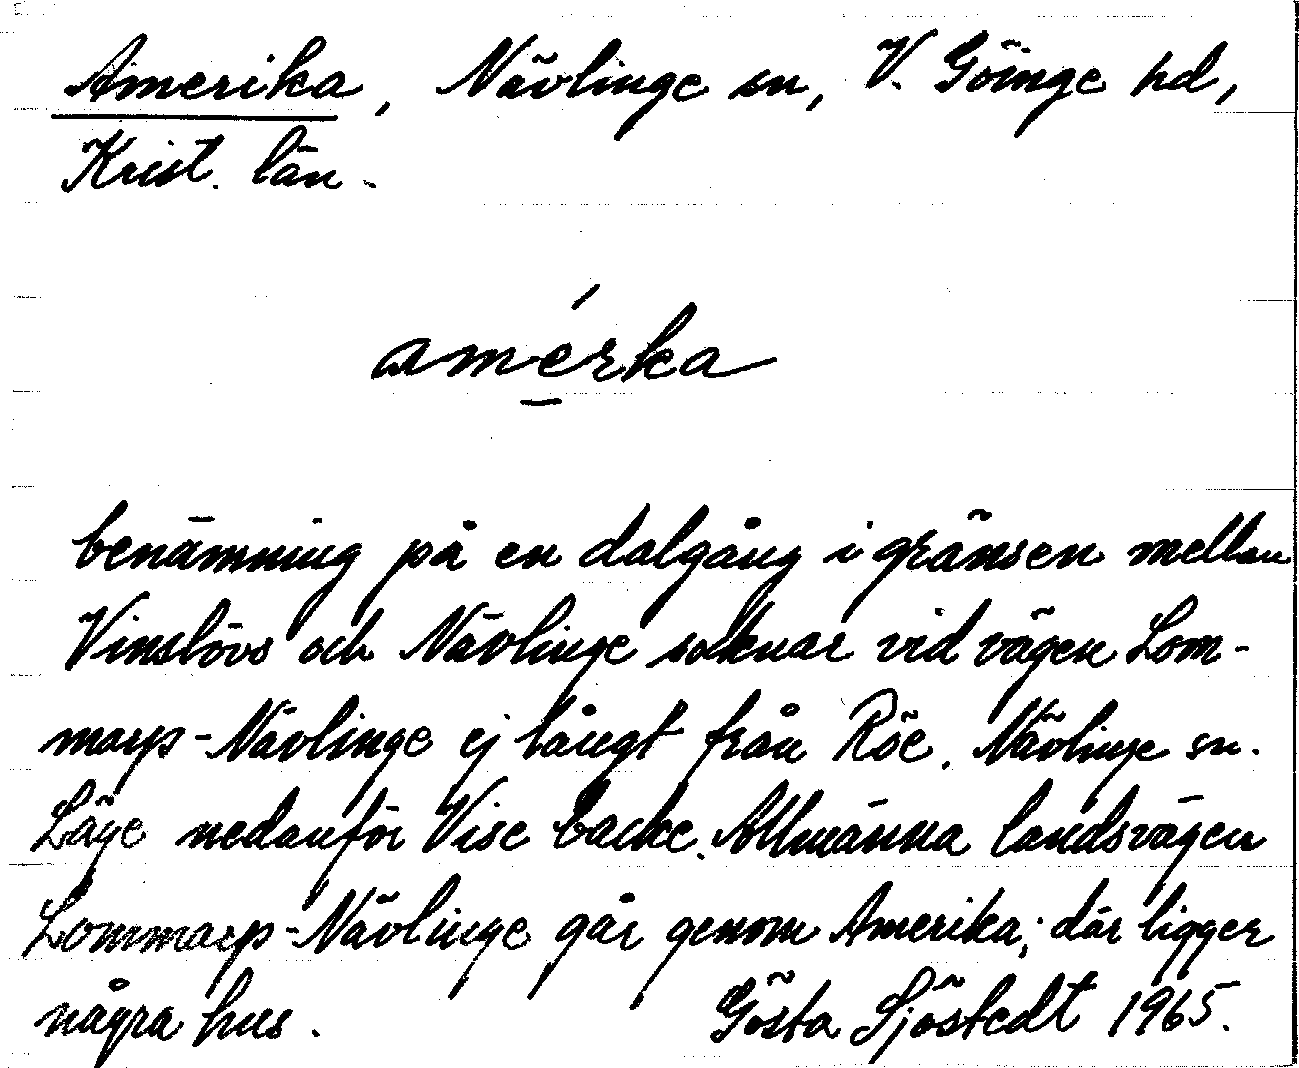 Amerika, Nävlinge sn, V. Göinge hd,
Krist. län.
amérka
benämning på en dalgång i gränsen mellan
Vinslövs och Nävlinge socknar vid vägen Lom-
marp-Nävlinge ej långt från Röe, Nävlinge sn.
Läge nedanför Vise backe. Allmänna landsvägen
Lommarp-Nävlinge går genom Amerika; där ligger
några hus. Gösta Sjöstedt 1965.